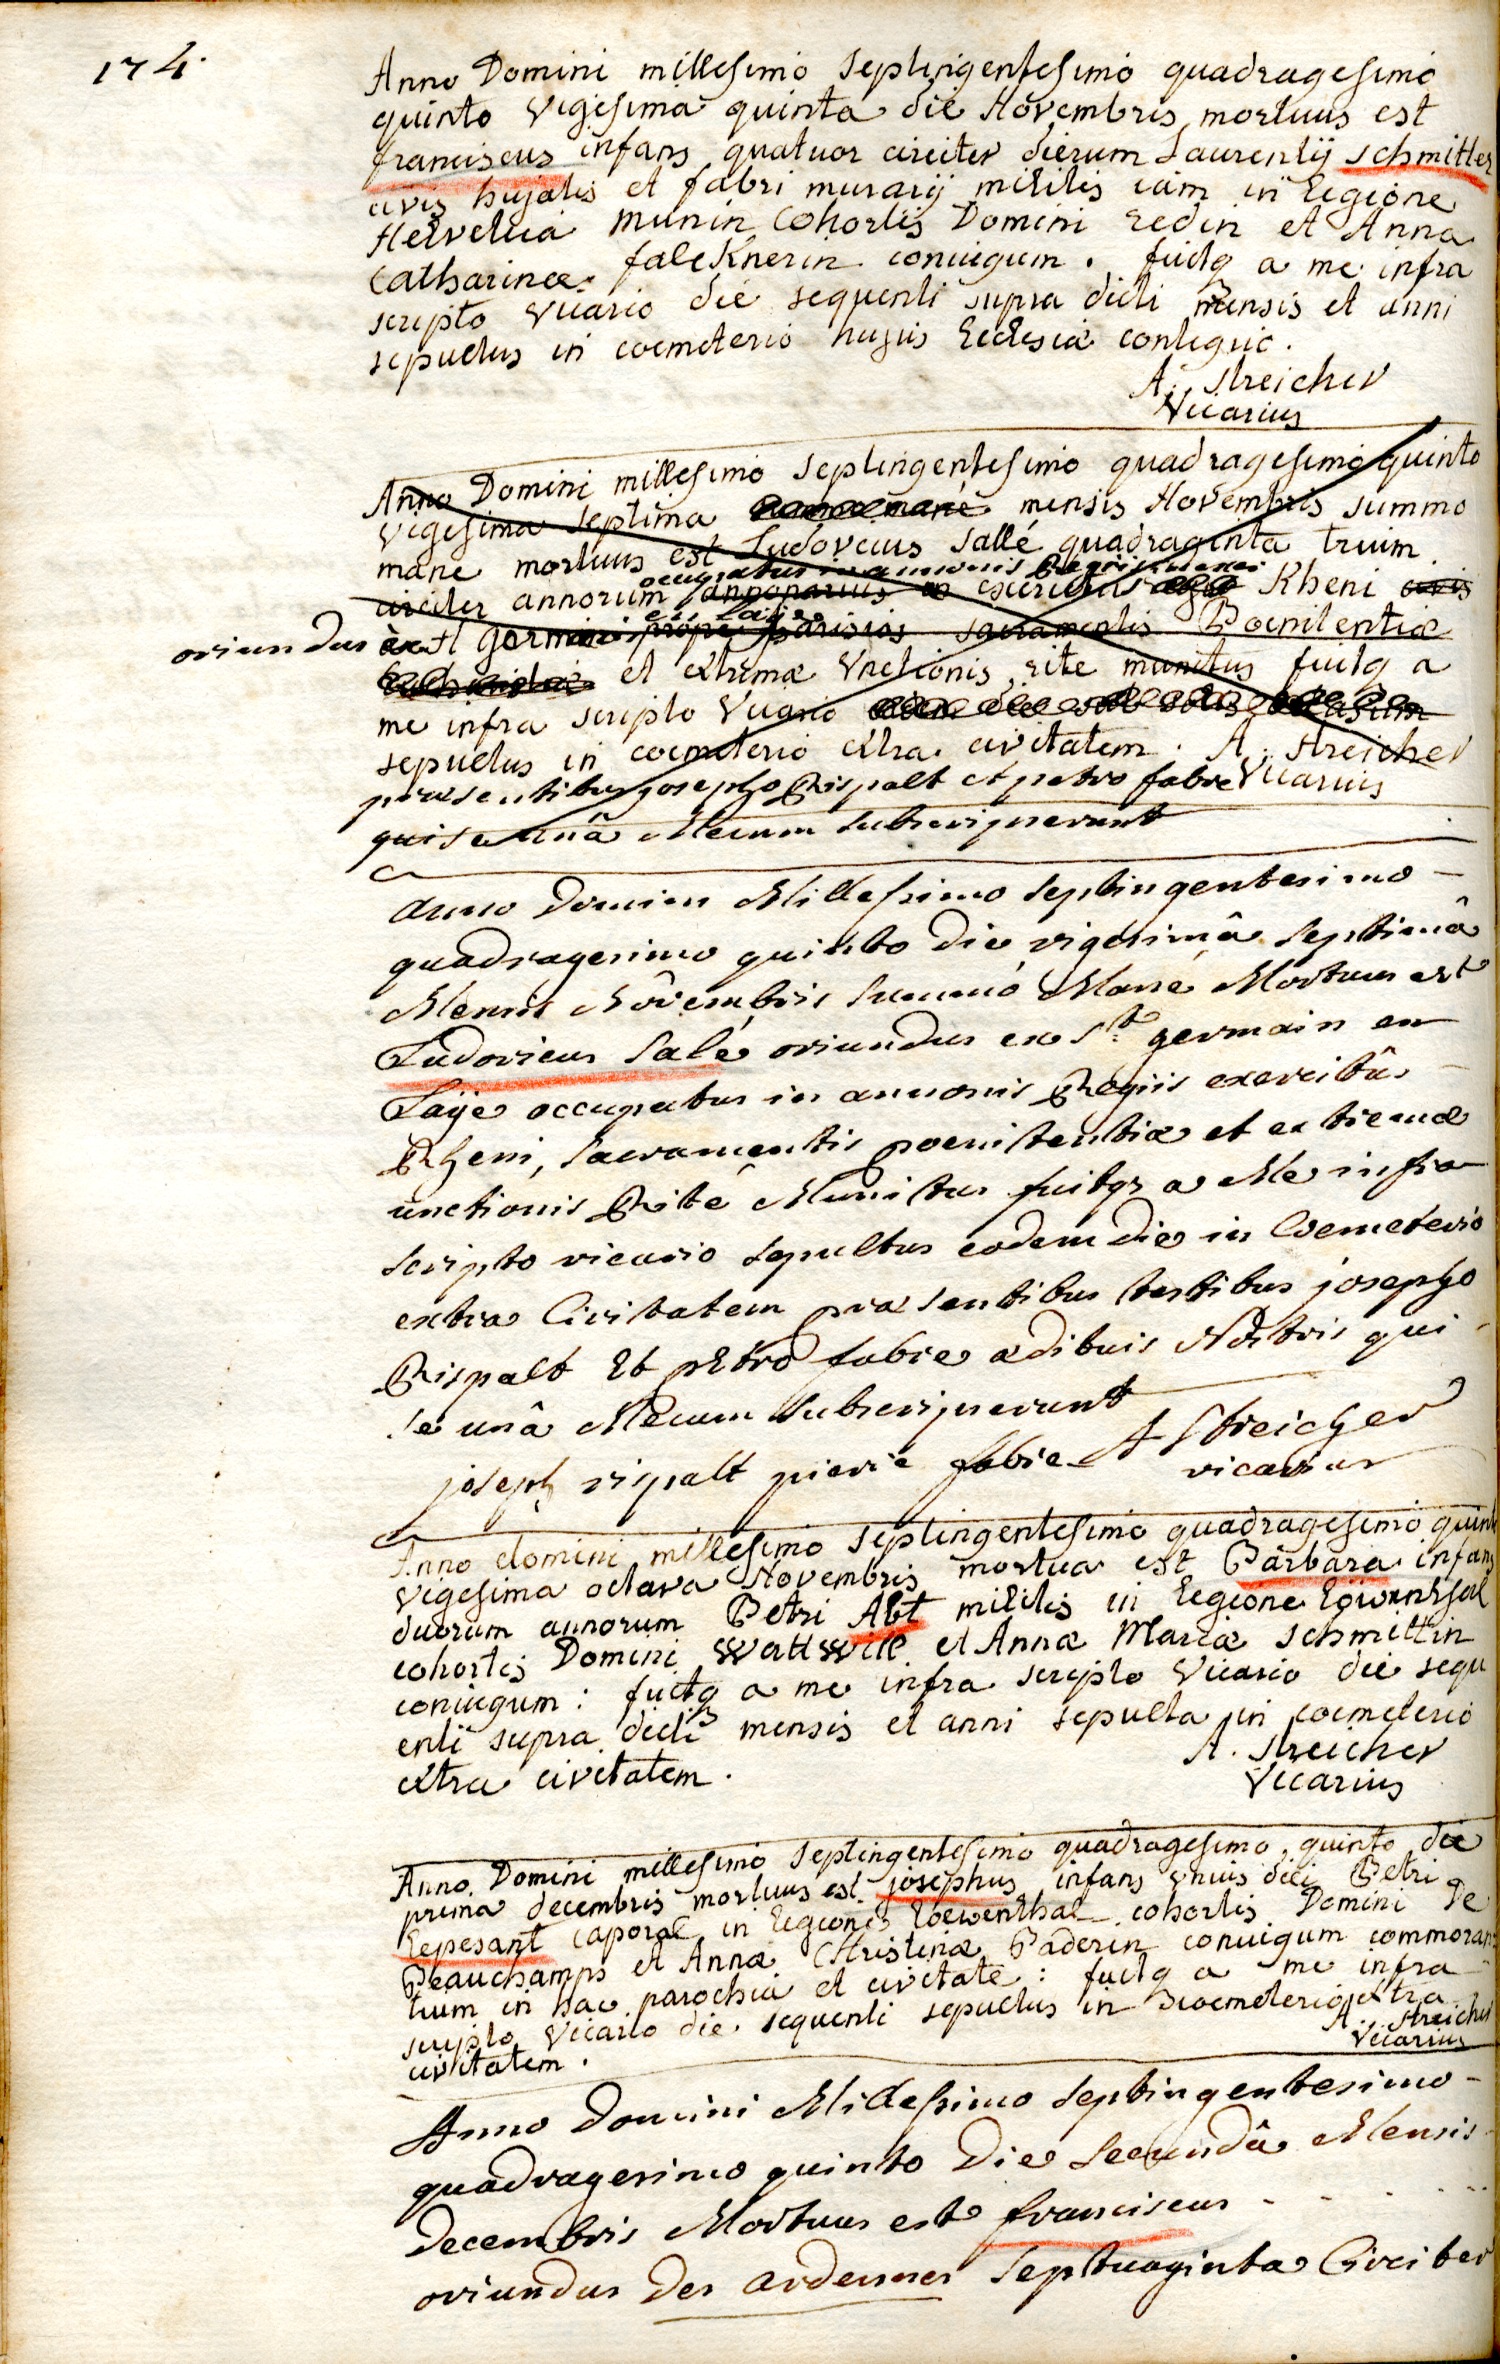 174.
Anno Domini millesimo septingentesimo quadragesimo
quinto vigesima quinta die Novembris mortuus est
franciscus infans quatuor circiter dierum Laurentij schmitter
civis hujatis et fabri murarij militis iam in legione
Helvetica munin Cohortis Domini redin et Anna
Catharinæ falcknerin coniugum. fuitq a me infra
scripto vicario die sequenti supra dicti mensis et anni
sepultus in coemeterio hujus Ecclesiæ contiguo.
A. Streicher
Vicarius
Anno Domini millesimo septingentesimo quadragesimo quinto
vigesima septima mensis Novembris summo
mane mortuus est Ludovicus Sallé quadraginta trium
occupatus in annonis Regiis
circiter annorum annonarius exercitus Rheni civis
en Laije
oriundus ex st germain prope parisios sacramentis Poenitentiæ
et extremæ Unctionis rite munitus fuitq a
me infra scripto Vicario
sepultus in coemeterio extra civitatem. A. Streicher
præsentibus josepho Rispalt et petro fabre Vicarius
qui se unâ Mecum subscripserunt
anno Domini Millesimo septingentesimo
quadragesimo quinto die vigesimâ septimâ
Mensis Novembris summó Mané Mortuus est
Ludovicus Salé oriundus ex St. germain en
Laije occupatus in annonis Regiis exercitûs
Rheni, sacramentis poenitentiæ et extremæ
unctionis Rité Munitus fuitqz a Me infra
scripto vicario sepultus eodem die in Coemeterio
extra Civitatem præsentibus testibus josepho
Rispalt Et pEtro fabre ædituis Nostris qui
se unâ Mecum subscripserunt
joseph rispalt pierre fabre A Streicher
vicarius
Anno domini millesimo septingentesimo quadragesimo quinto
vigesima octava Novembris mortua est Barbara infans
duorum annorum Petri Abt militis in legione Löwenthal
cohortis Domini Wattwill et Annæ Mariæ schmittin
coniugum: fuitq a me infra scripto Vicario die sequ
enti supra dicti mensis et anni sepulta in coemeterio
extra civitatem.
A. Streicher
Vicarius
Anno Domini millesimo septingentesimo quadragesimo quinto die
prima decembris mortuus est josephus infans unius diei Petri
Lepesant Caporal in legione Loewenthal cohortis Domini De
Beauchamps et Annæ Christinæ Baderin coniugum commoran
tium in hac parochia et civitate: fuitq a me infra
scripto Vicario die sequenti sepultus in coemeterio extra
civitatem.
A. Streicher
Vicarius
Anno Domini Millesimo septingentesimo
quadragesimo quinto Die secundâ Mensis
Decembris Mortuus est franciscus
oriundus Des ardennes septuaginta Circiter